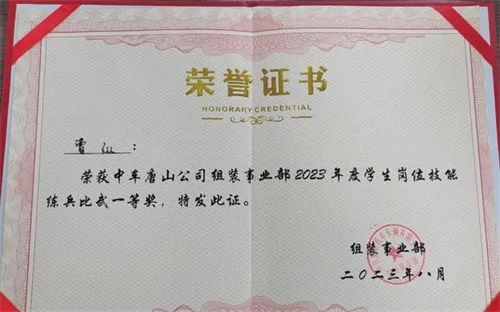 荣誉证书
HONORARY CREDENTIAL
曹 :
荣获中车唐山公司组装事业部2023年度学生岗位技能
练兵比武一等奖，特发此证。
组装事业部
二〇二三年八月